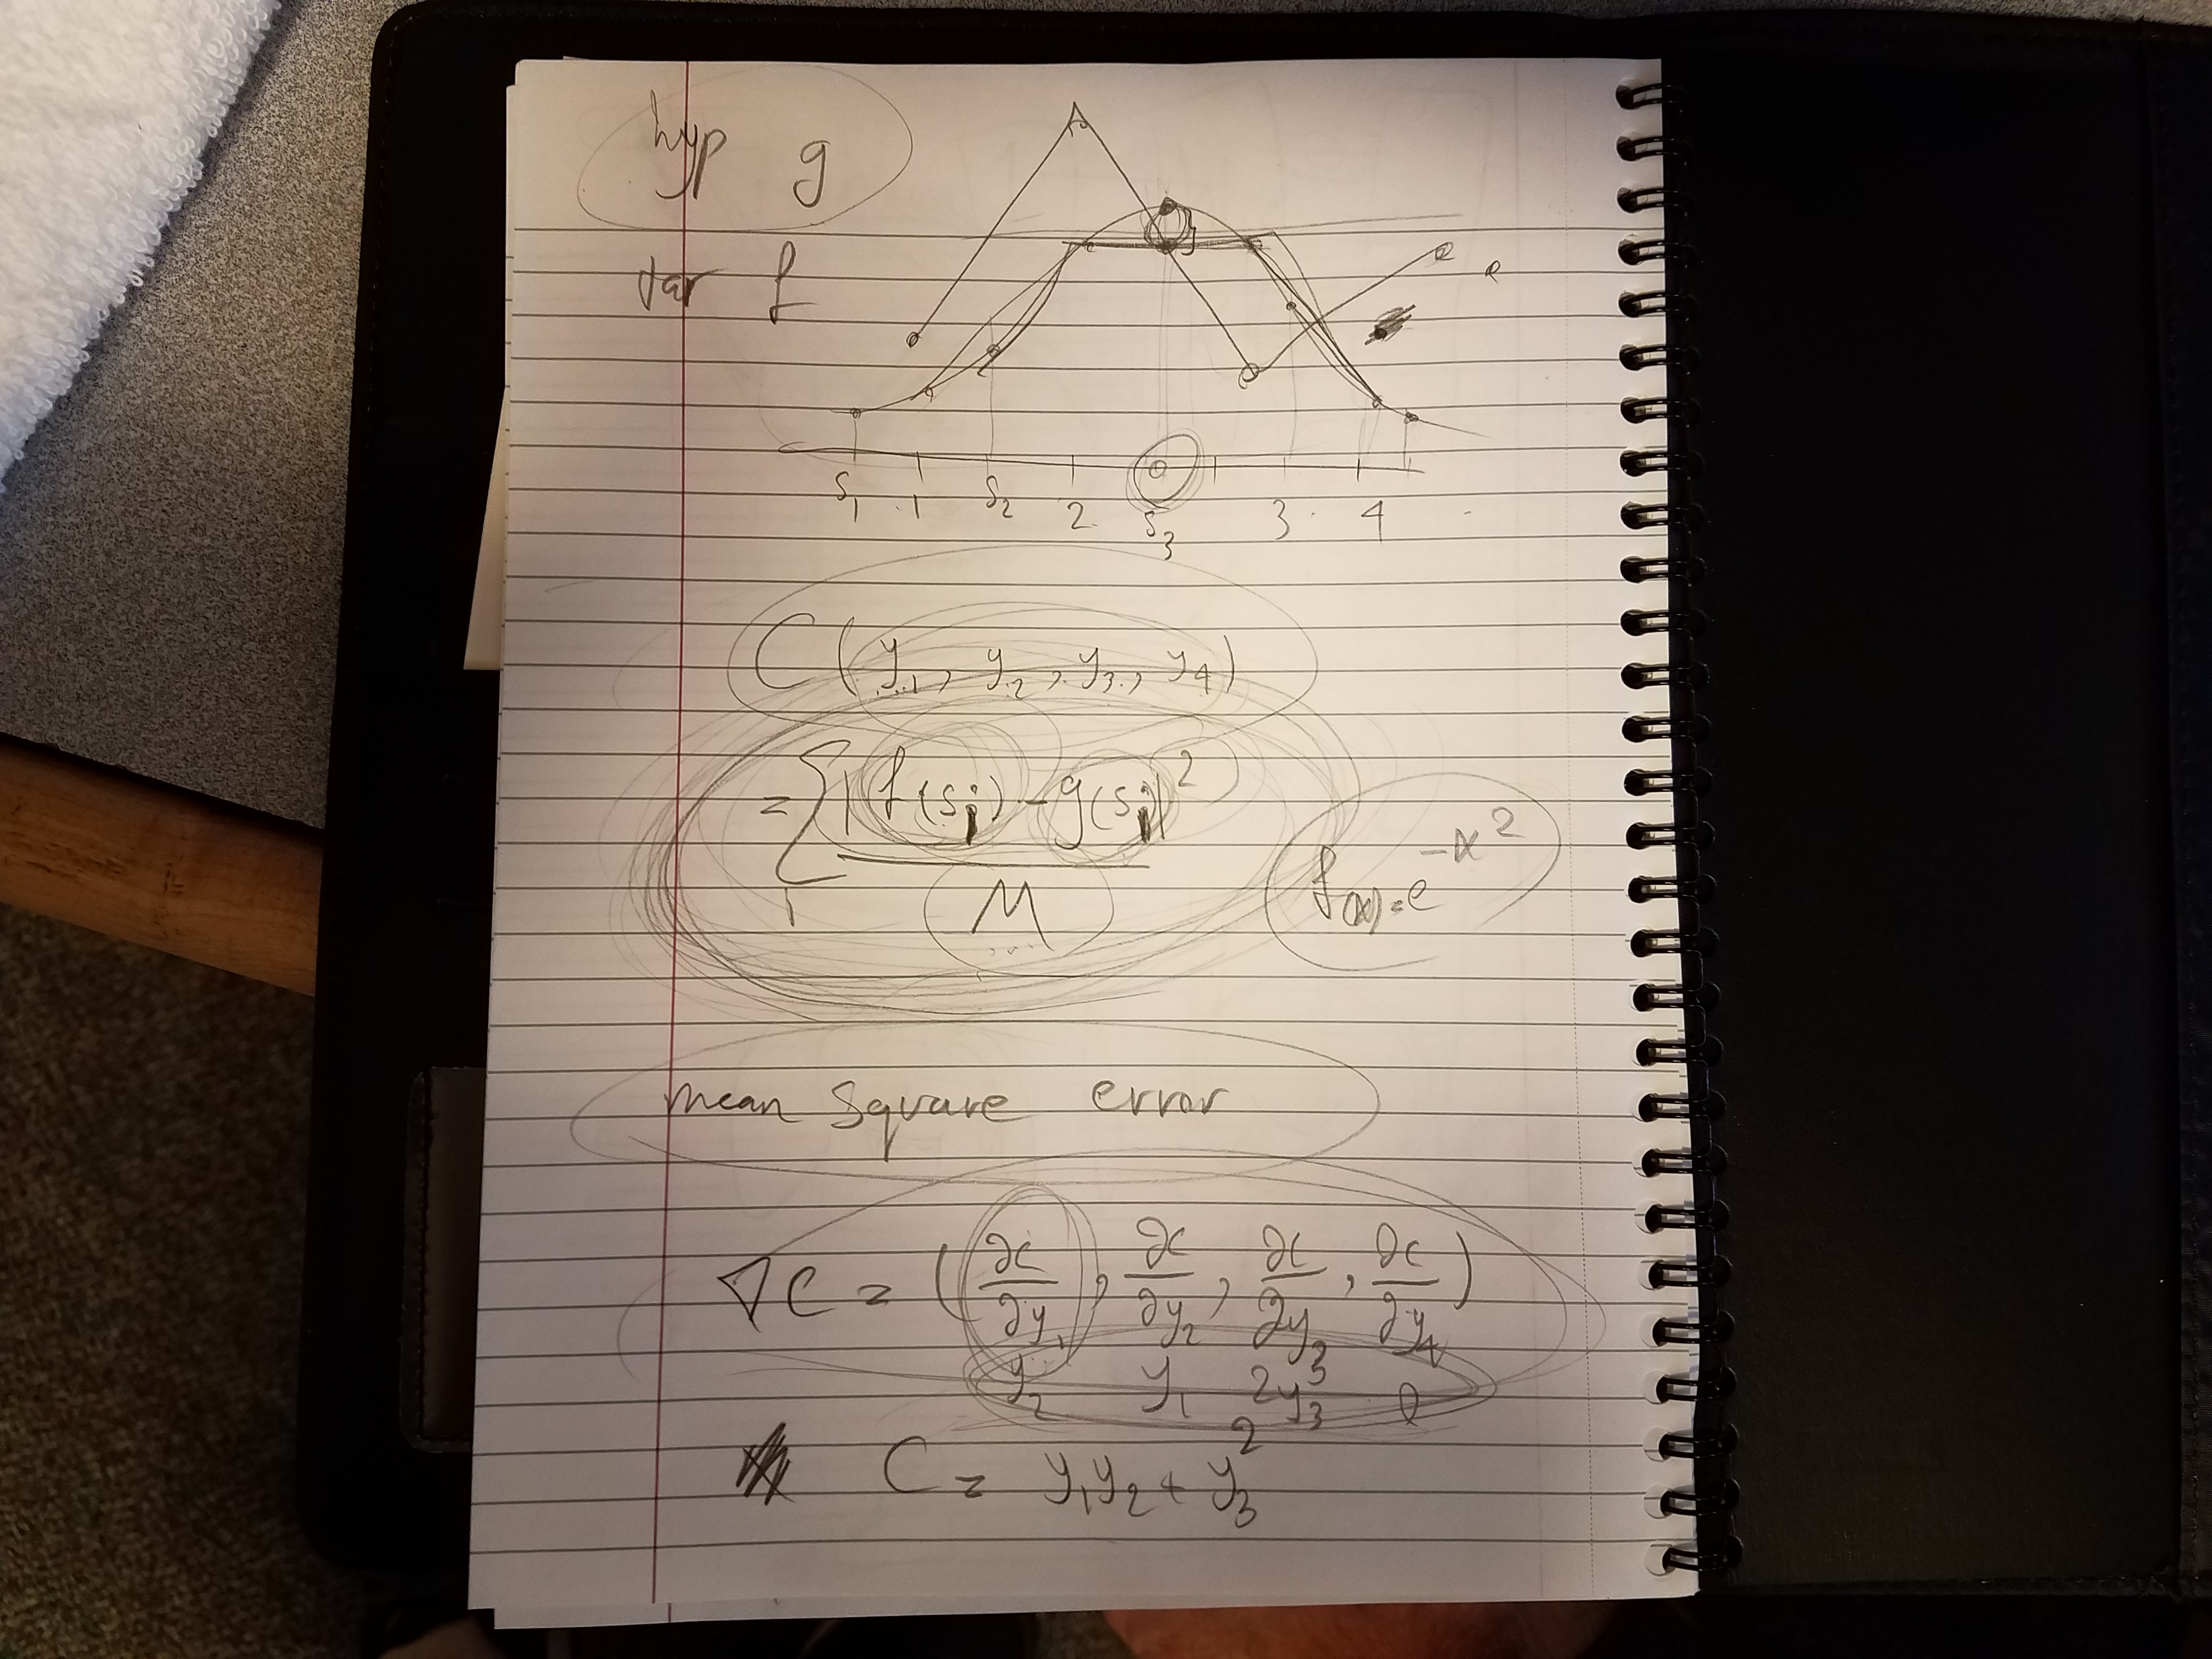 hyp g
f
S₁ 1 S₂ 2 S₃ 3 4
C(y₁, y₂, y₃, y₄)
= Σᵢ |f(sᵢ) - g(sᵢ)|² / M
f(x) = e^(-x²)
mean square error
∇C = (∂C/∂y₁, ∂C/∂y₂, ∂C/∂y₃, ∂C/∂y₄)
y₂ y₁ 2y₃ 0
C = y₁y₂ + y₃²